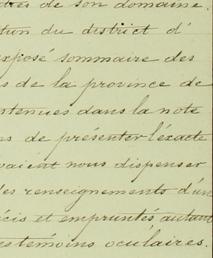 dres de son domaine.
tion du district d'
exposé sommaire des
s de la province de
ntenues dans la note
ns de présenter l'exacte
vaient nous dispenser
des renseignements d'un
cis et empruntés autant
es témoins oculaires.